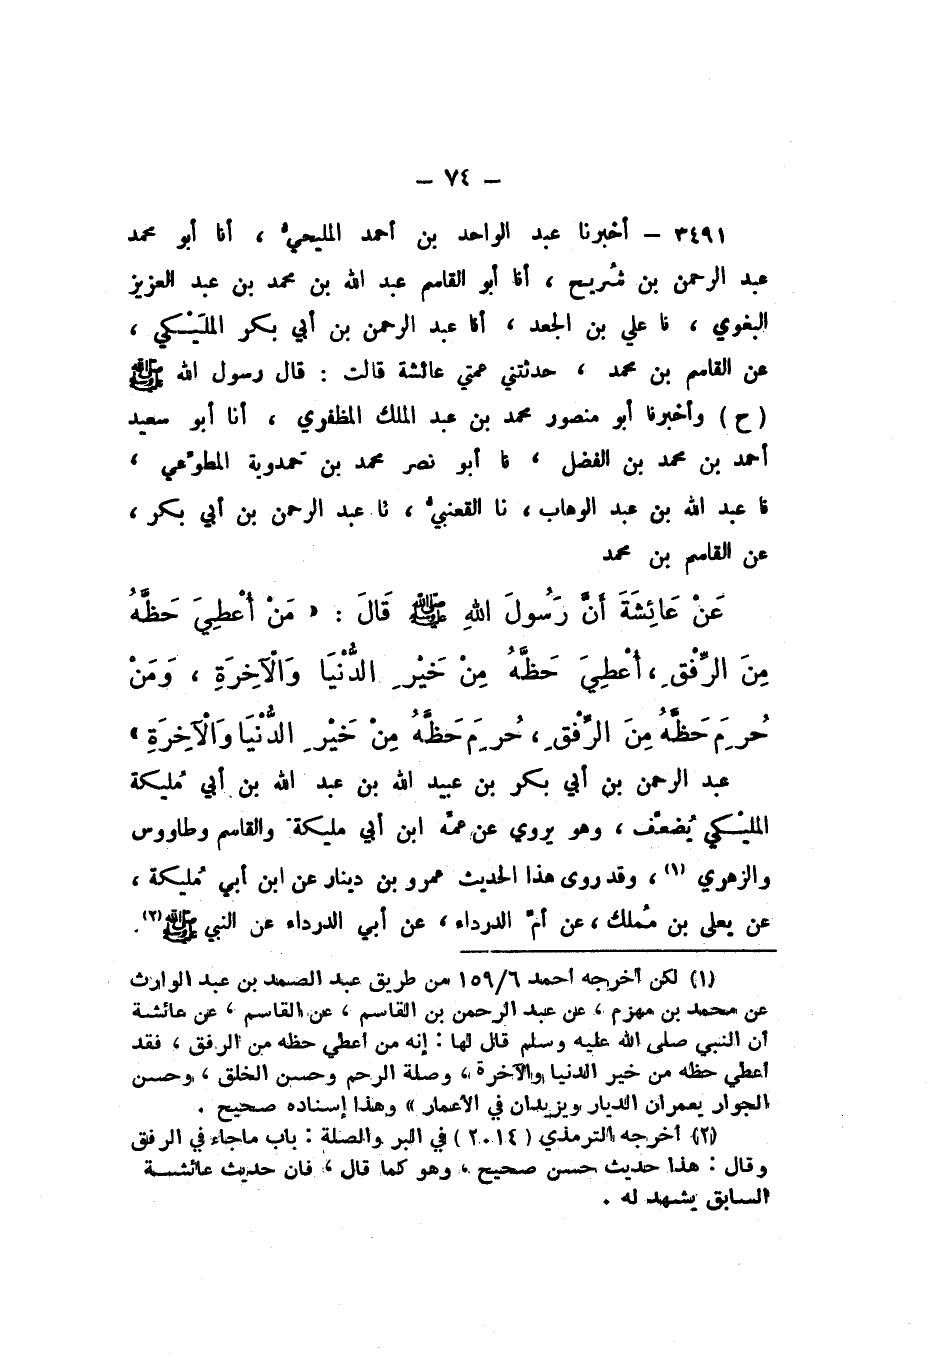 – ٧٤ –
٣٤٩١ – أخبرنا عبد الواحد بن أحمد المليحيُّ ، أنا أبو محمد
عبد الرحمن بن شُريح ، أنا أبو القاسم عبد الله بن محمد بن عبد العزيز
البغوي ، نا علي بن الجعد ، أنا عبد الرحمن بن أبي بكر المُلَيْكي ،
عن القاسم بن محمد ، حدثتني عمتي عائشة قالت : قال رسول الله ﷺ
( ح ) وأخبرنا أبو منصور محمد بن عبد الملك المظفري ، أنا أبو سعيد
أحمد بن محمد بن الفضل ، نا أبو نصر محمد بن حَمدوية المطوِّعي ،
نا عبد الله بن عبد الوهاب ، نا القعنبيُّ ، نا عبد الرحمن بن أبي بكر ،
عن القاسم بن محمد
عَنْ عَائِشَةَ أَنَّ رَسُولَ اللهِ ﷺ قَالَ : « مَنْ أُعْطِيَ حَظَّهُ
مِنَ الرِّفْقِ ، أُعْطِيَ حَظَّهُ مِنْ خَيْرِ الدُّنْيَا وَالْآخِرَةِ ، وَمَنْ
حُرِمَ حَظَّهُ مِنَ الرِّفْقِ ، حُرِمَ حَظَّهُ مِنْ خَيْرِ الدُّنْيَا وَالْآخِرَةِ »
عبد الرحمن بن أبي بكر بن عبيد الله بن عبد الله بن أبي مُليكة
المليْكي يُضعَّف ، وهو يروي عن عمِّه ابن أبي مليكة والقاسم وطاووس
والزهري (١) ، وقد روى هذا الحديث عمرو بن دينار عن ابن أبي مُليكة ،
عن يعلى بن مُملك ، عن أمِّ الدرداء ، عن أبي الدرداء عن النبي ﷺ (٢) .
(١) لكن أخرجه أحمد ١٥٩/٦ من طريق عبد الصمد بن عبد الوارث
عن محمد بن مهزم ، عن عبد الرحمن بن القاسم ، عن القاسم ، عن عائشة
أن النبي صلى الله عليه وسلم قال لها : إنه من أعطي حظه من الرفق ، فقد
أعطي حظه من خير الدنيا والآخرة ، وصلة الرحم وحسن الخلق ، وحسن
الجوار يعمران الديار ويزيدان في الأعمار » وهذا إسناده صحيح .
(٢) أخرجه الترمذي ( ٢٠١٤ ) في البر والصلة : باب ماجاء في الرفق
وقال : هذا حديث حسن صحيح ، وهو كما قال ، فان حديث عائشة
السابق يشهد له .